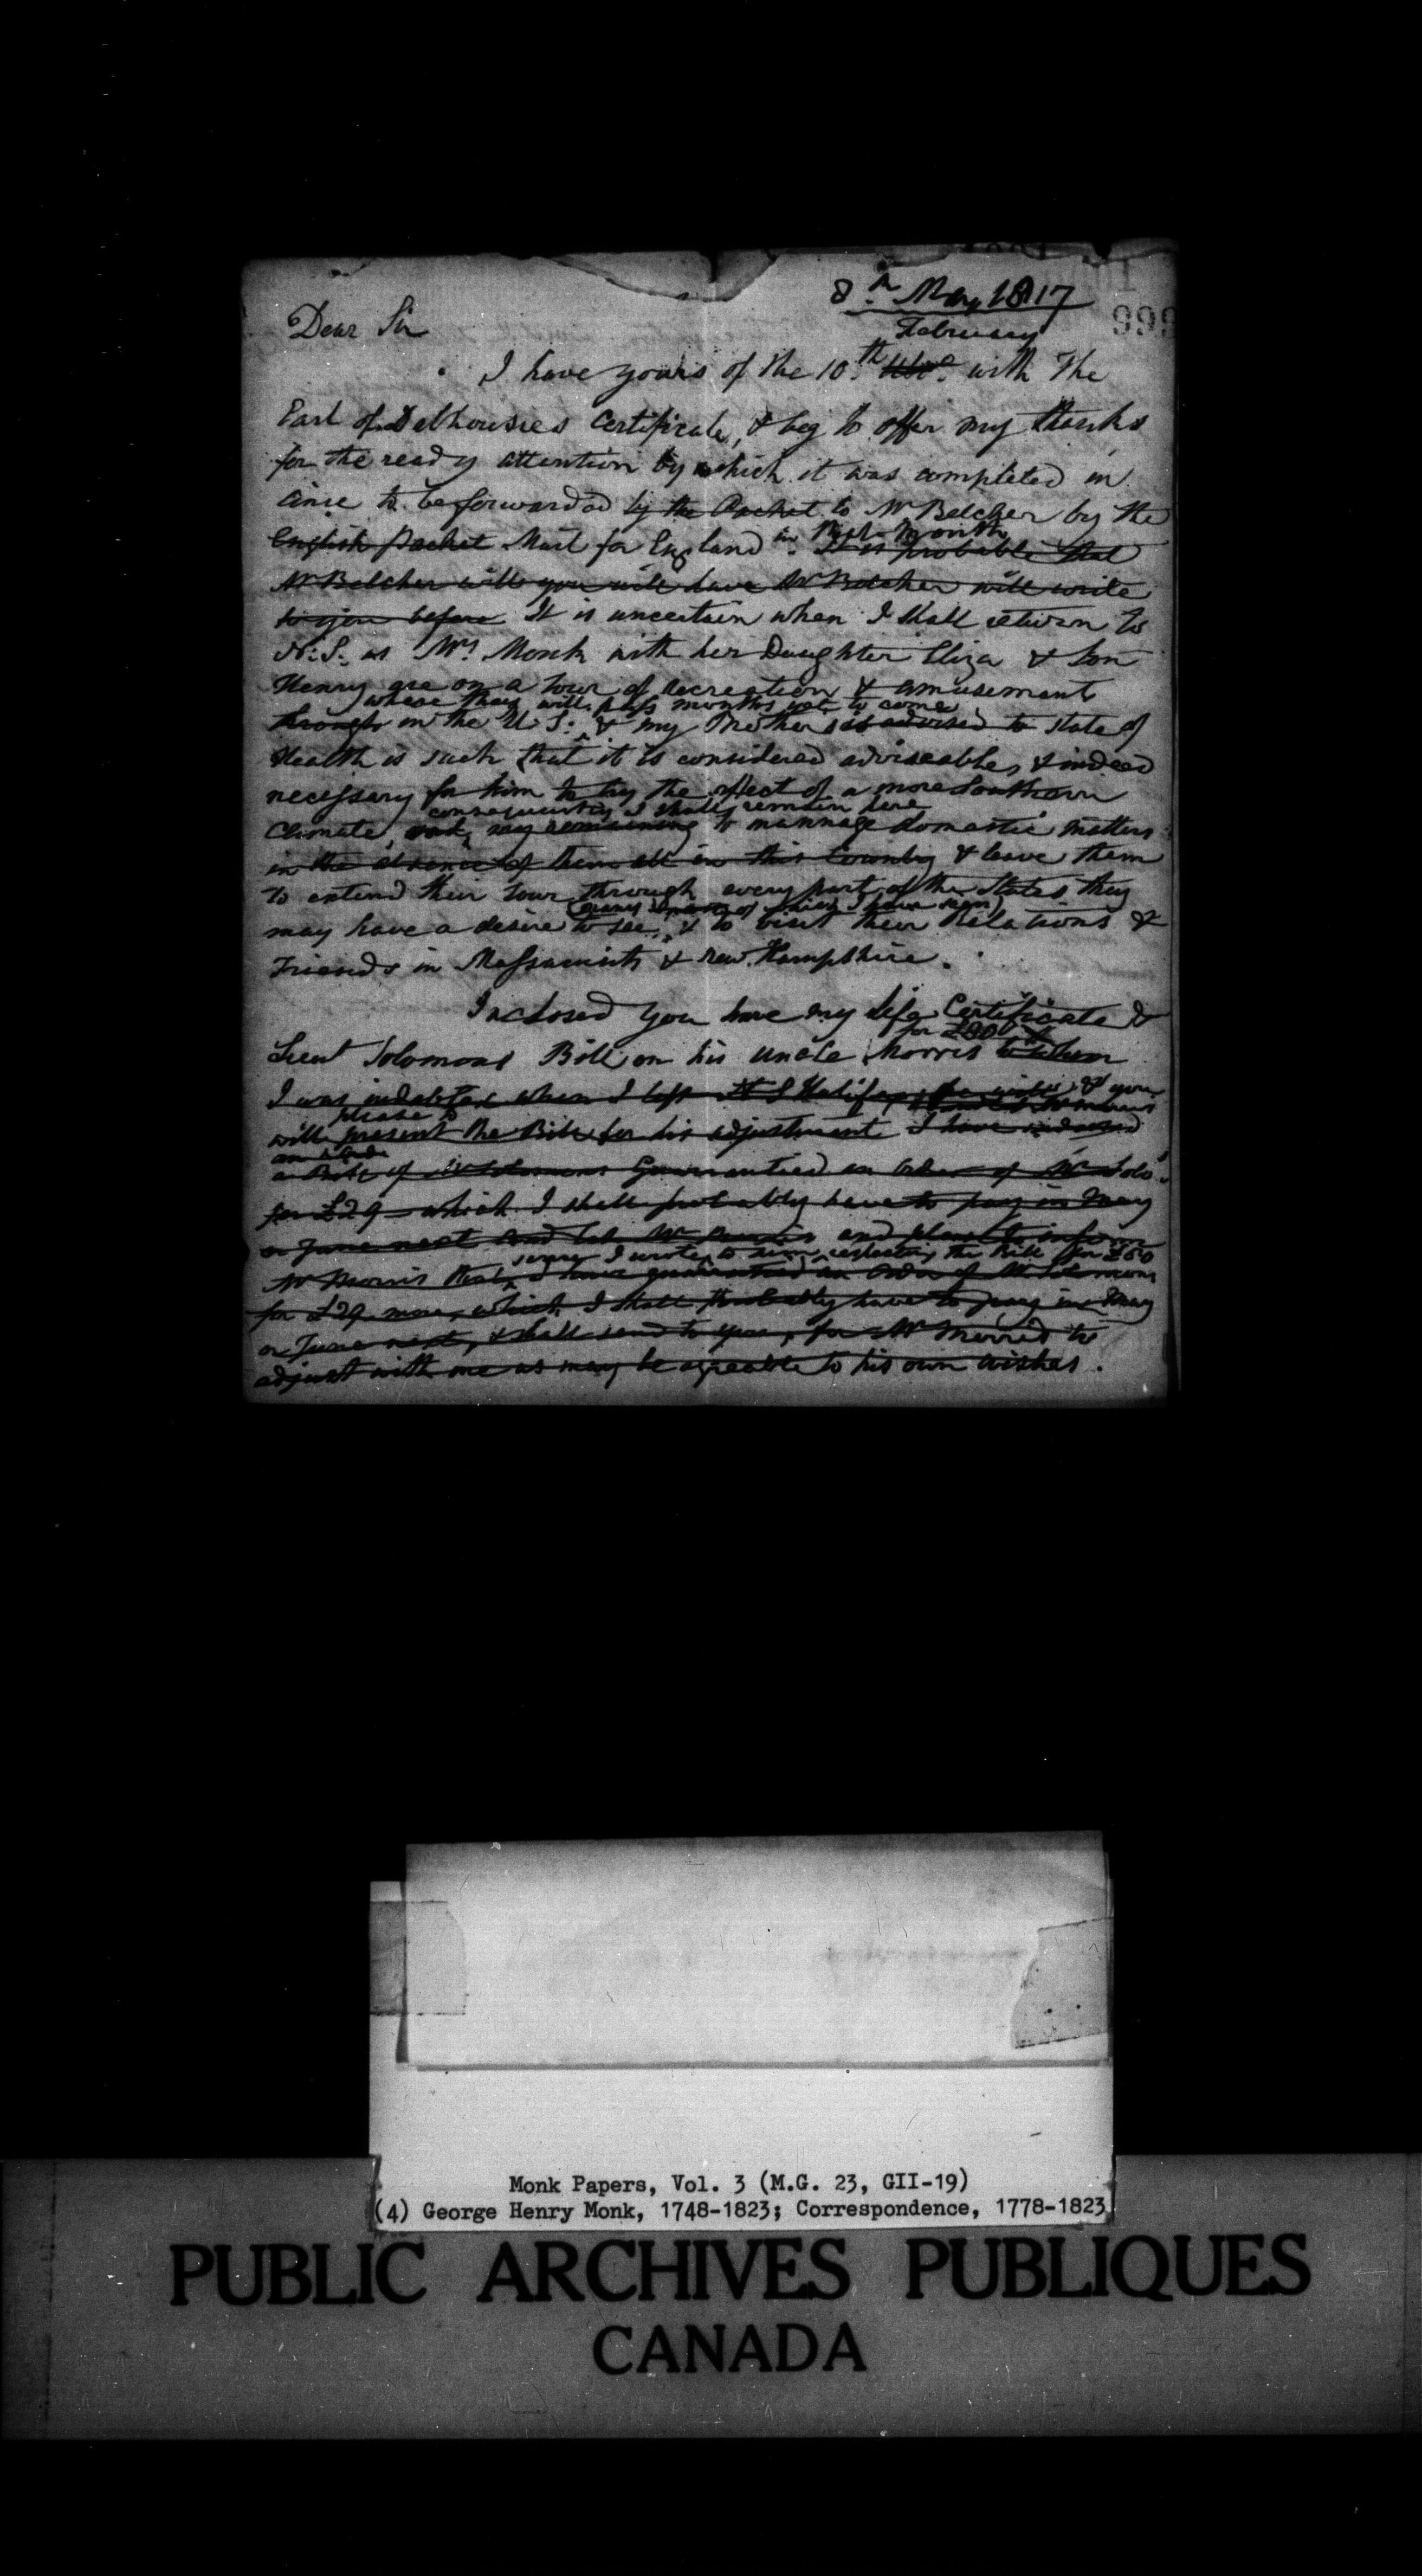 8th May 1817
999
Dear Sir
February
I have yours of the 10th Ulto with The
Earl of Dalhousies Certificate, & beg to offer my thanks
for the ready attention by which it was completed in
time to be forwarded by the Packet to Mr Belcher by the
in that month
English Packet Mail for England. It is probable that
Mr Belcher will you will have Mr Belcher will write
to you before It is uncertain when I shall return to
N.S. as Mrs Monk with her Daughter Eliza & Son
Henry are on a tour of recreation & amusement
where they will pass months yet to come
through in the U.S. & my Brothers is advised to state of
Health is such that it is considered adviseable, & indeed
necessary for him to try the effect of a more Southern
consequently I shall remain here
Climate, and my remaining to mannage domestic matters
in the absence of them all in this Country & leave them
to extend their tour through every part of the States they
(every of which I have seen)
may have a desire to see, & to visit their Relations &
Friends in Massachusits & New Hampshire.
Inclosed you have my life Certificate &
for
Lieut Solomons Bill on his uncle Morris to whom
I was indebted when I left Halifax & you
please to
will present the Bill for his adjustment I have indorsed
a Bill of Mr Solomons Guarantied an Order of Mr Solo
for £29 which I shall probably have to pay in May
or June next and Mr Morris and please to inform
since I wrote to him respecting the Bill for £50
Mr Morris that, I have guarantied an Order of Mr Solomons
for £29 more, which I shall probably have to pay in May
or June next, & shall send to you, for Mr Morris to
adjust with me as may be agreable to his own wishes.
Monk Papers, Vol. 3 (M.G. 23, GII-19)
(4) George Henry Monk, 1748-1823; Correspondence, 1778-1823
PUBLIC ARCHIVES PUBLIQUES
CANADA